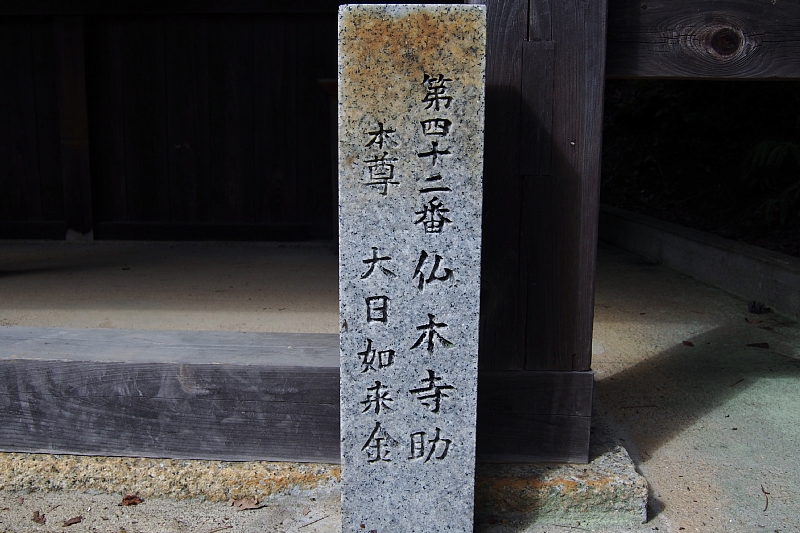 第四十二番仏木寺助
本尊 大日如来金